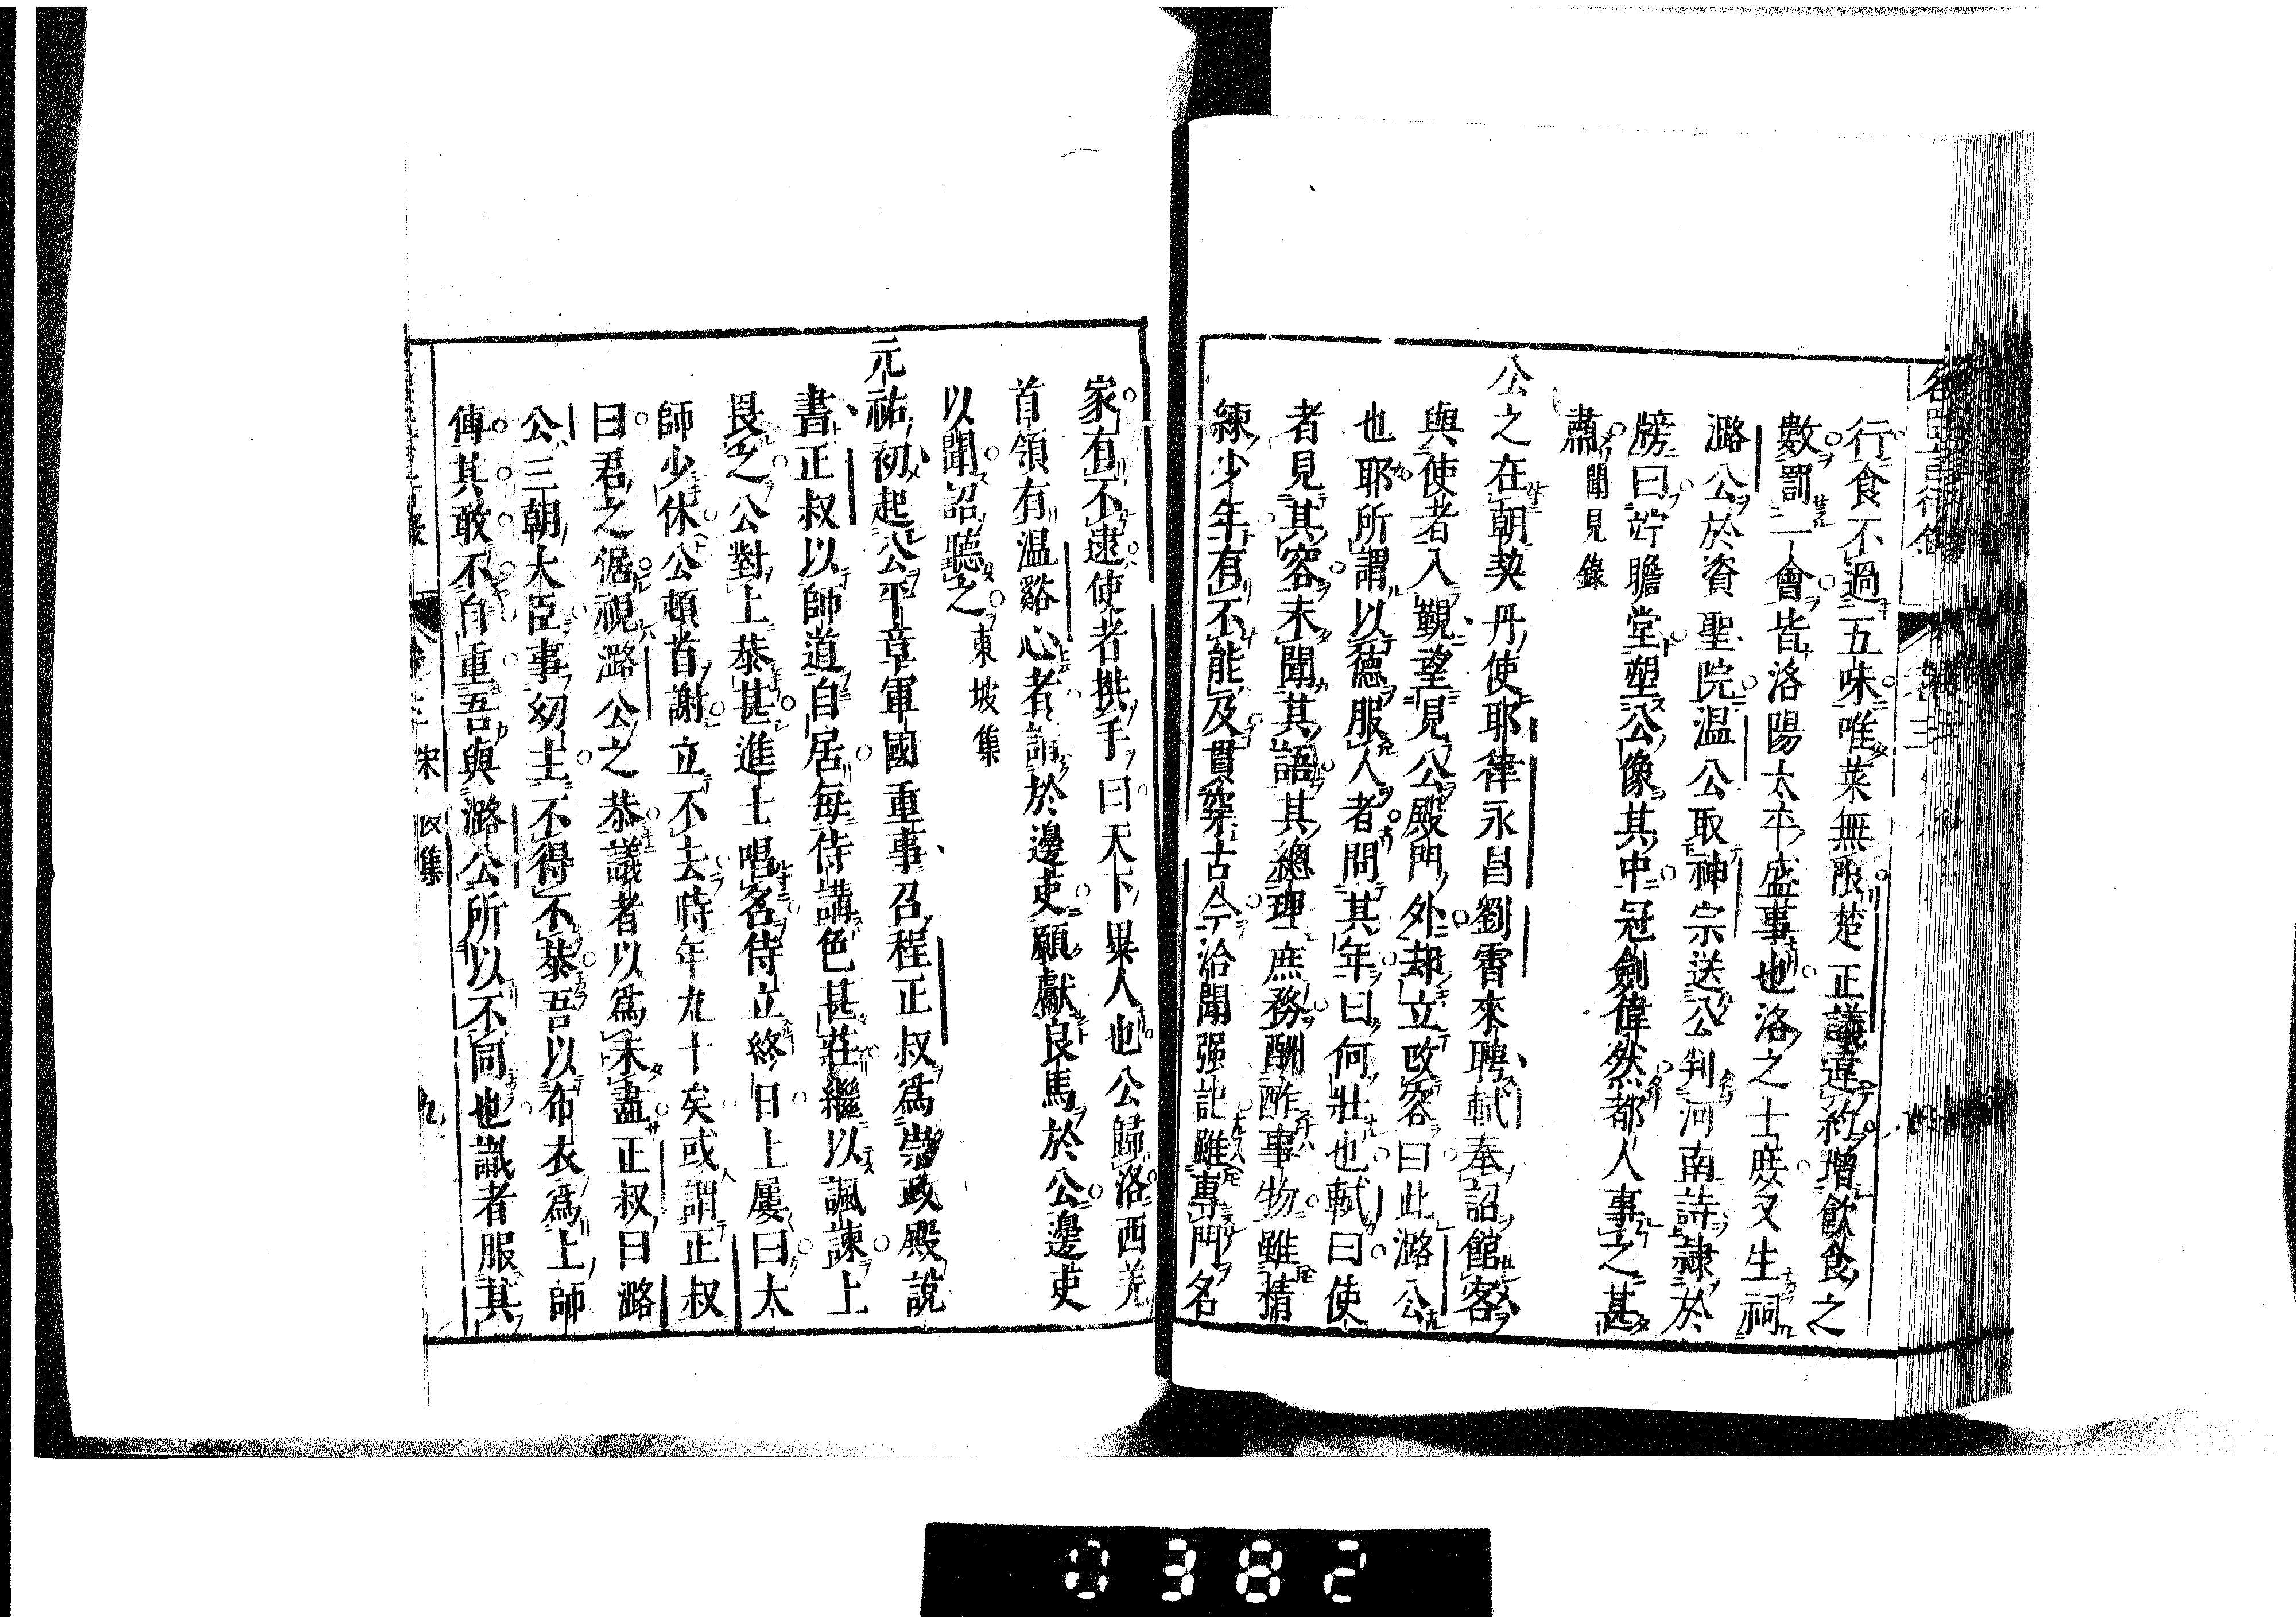 行食不過五味唯菜無限楚正議違約增飲食之
數罰一會皆洛陽太平盛事也洛之士庶又生祠
潞公於資聖院温公取神宗送公判河南詩隸於
牓曰竚瞻堂塑公像其中冠劒偉然都人事之甚
肅聞見錄
公之在朝契丹使耶律永昌劉霄來聘軾奉詔館客
與使者入覲望見公殿門外却立改容曰此潞公
也耶所謂以德服人者問其年曰何壯也軾曰使
者見其容未聞其語其總理庶務酬酢事物雖精
練少年有不能及貫穿古今洽聞强記雖專門名
家有不逮使者拱手曰天下異人也公歸洛西羌
首領有温谿心者請於邊吏願獻良馬於公邊吏
以聞詔聽之東坡集
元祐初起公平章軍國重事召程正叔爲崇政殿說
書正叔以師道自居每侍講色甚莊繼以諷諫上
畏之公對上恭甚進士唱名侍立終日上屢曰太
師少休公頓首謝立不去時年九十矣或謂正叔
曰君之倨視潞公之恭議者以爲未盡正叔曰潞
公三朝大臣事幼主不得不恭吾以布衣爲上師
傅其敢不自重吾與潞公所以不同也識者服其
宋 後集
九
0382